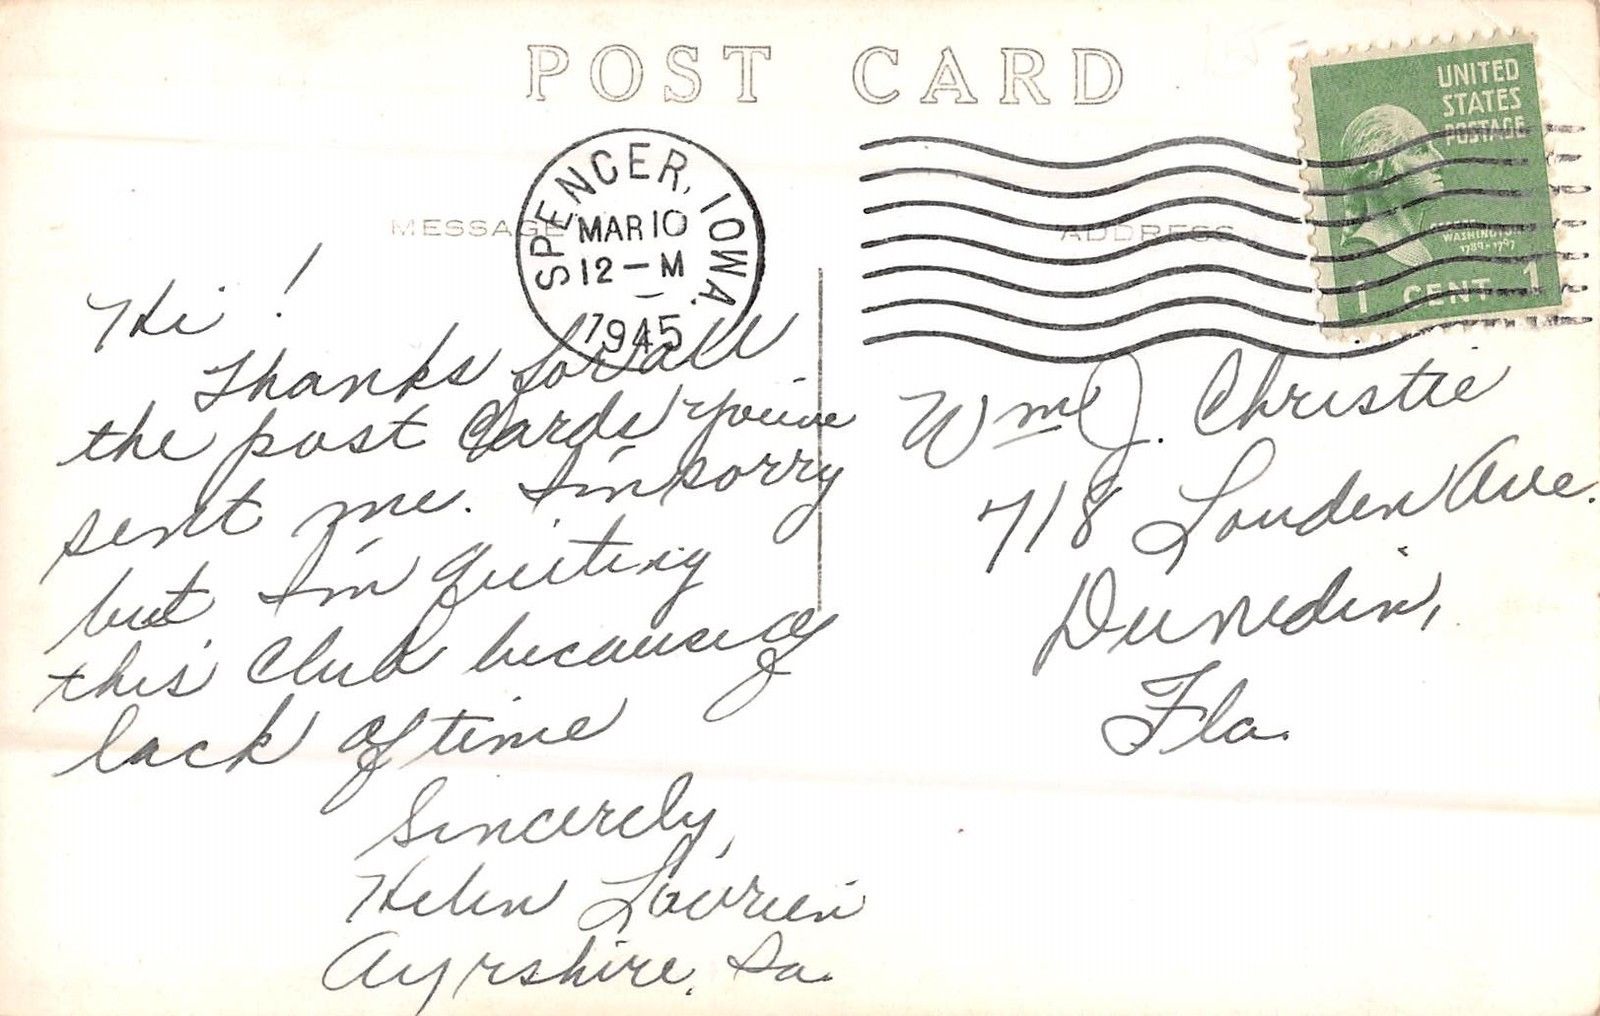 POST CARD
MESSAGE
ADDRESS
SPENCER, IOWA.
MAR 10
12 — M
1945
UNITED
STATES
POSTAGE
GEORGE
WASHINGTON
1789-1797
1 CENT 1
Hi!
Thanks for all
the post cards you've
sent me. I'm sorry
but I'm quiting
this club because of
lack of time
Sincerely,
Helen
Ayrshire, Ia.
Wm J. Christie
718 Louden Ave.
Dunedin,
Fla.